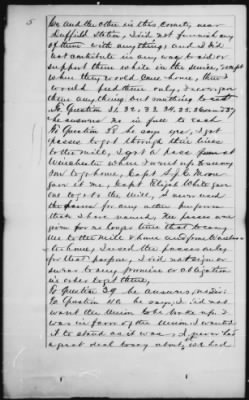 5
Co and the other in this County near
Duffield Station, I did not furnish any
of them with anything, and I did
not contribute in any way to aid or
support them while in the service, except
when they would come home, then I
would feed them only, I never gave
them anything but nothing to
To Question 31. 32. 33. 34. 35. 36 and 37
he answers No in full to each
To Question 38 he says yes, I got
passes to get through their lines
to the mill, I got a pass from at
Winchester when I went up to
to go home, Capt S. J. C. Moore
gave it me, Capt Elijah White gave
one to go to the Mill, I never used
the passes for any other purposes
than I have named, The passes were
given for no longer time than to carry
me to the Mill & home and from Winchester
to home, I used the passes only
for that purpose, I did not sign or
swear to any promise or obligation
in order to get them,
To Question 39 he answers No Sir.
To Question 40 he says, I did not
want the Union to be broke up. I
was in favor of the Union. I wanted
it to stand as it was, I never had
a great deal to say about it. We had